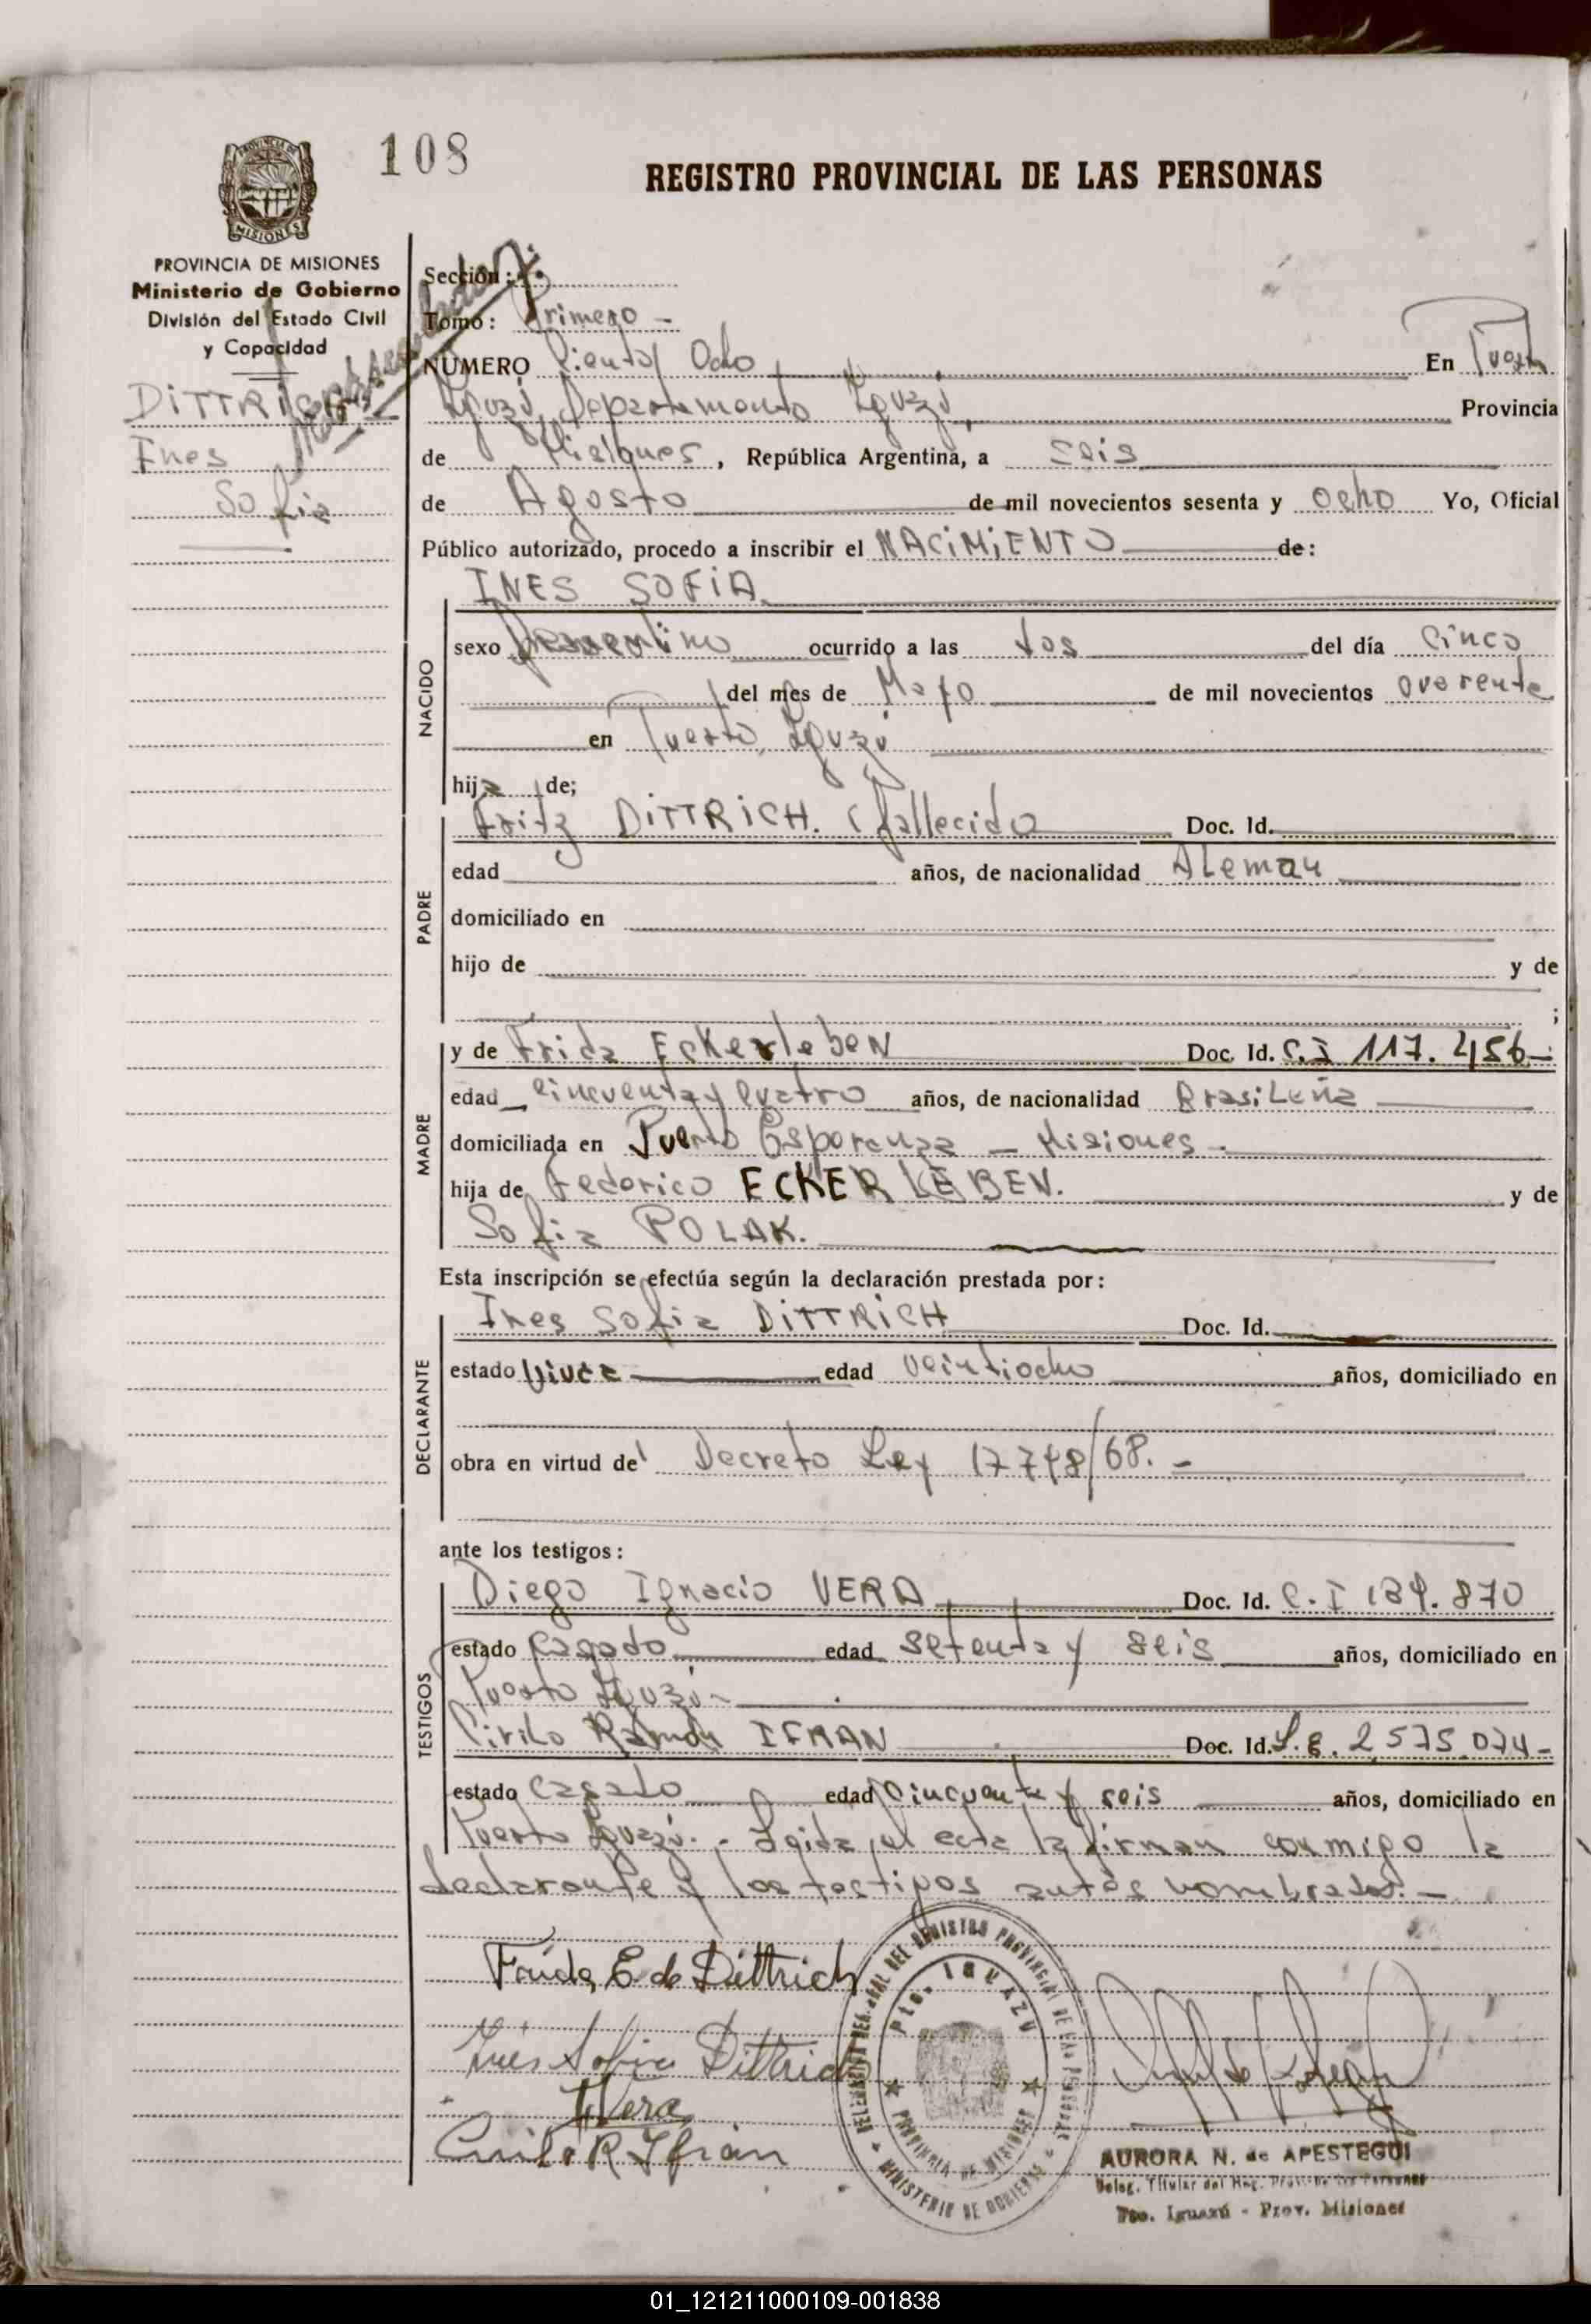 108
REGISTRO PROVINCIAL DE LAS PERSONAS
PROVINCIA DE MISIONES
Ministerio de Gobierno
División del Estado Civil
y Capacidad
DiTTRiCH
Ines
Sofia
Sección:
Tomo: Primero -
NUMERO Ciento Ocho En Puerto
Iguazú Departamento Iguazú, Provincia
de Misiones, República Argentina, a seis
de Agosto de mil novecientos sesenta y ocho Yo, Oficial
Público autorizado, procedo a inscribir el NACiMiENTO de:
INES SOFiA
NACIDO
sexo femenino ocurrido a las dos del día cinco
del mes de Mayo de mil novecientos cuarenta
en Puerto Iguazú
hija de;
PADRE
Fritz DiTTRiCH. (fallecido Doc. Id.
edad años, de nacionalidad Aleman
domiciliado en
hijo de y de
;
MADRE
y de Frida Eckerleben Doc. Id. C.I 117.456-
edad cincuenta y cuatro años, de nacionalidad Brasileña
domiciliada en Puerto Esperanza - Misiones -
hija de Federico ECKERLEBEN. y de
Sofia POLAK.
Esta inscripción se efectúa según la declaración prestada por:
DECLARANTE
Ines Sofia DiTTRiCH Doc. Id.
estado edad veintiocho años, domiciliado en
obra en virtud de Decreto Ley 17748/68. -
ante los testigos:
TESTIGOS
Diego Ignacio VERA Doc. Id. C.I 139.870
estado casado edad setenta y seis años, domiciliado en
Puerto Iguazú-
Cirilo Ramón IFRAN Doc. Id. 2.575.074-
estado casado edad cincuenta y seis años, domiciliado en
Puerto Iguazú. - Leida el acta la firman conmigo la
declarante y los testigos antes nombrados. -
Frida E de Dittrich
Ines Sofia Dittrich
Vera
Cirilo R Ifrán
DELEGACION DEL REGISTRO PROVINCIAL DE LAS PERSONAS
Pto. IGUAZU
PROVINCIA DE MISIONES
MINISTERIO DE GOBIERNO
AURORA N. de APESTEGUI
Deleg. Titular del Reg. Prov. de las Personas
Pto. Iguazú - Prov. Misiones
01_121211000109-001838